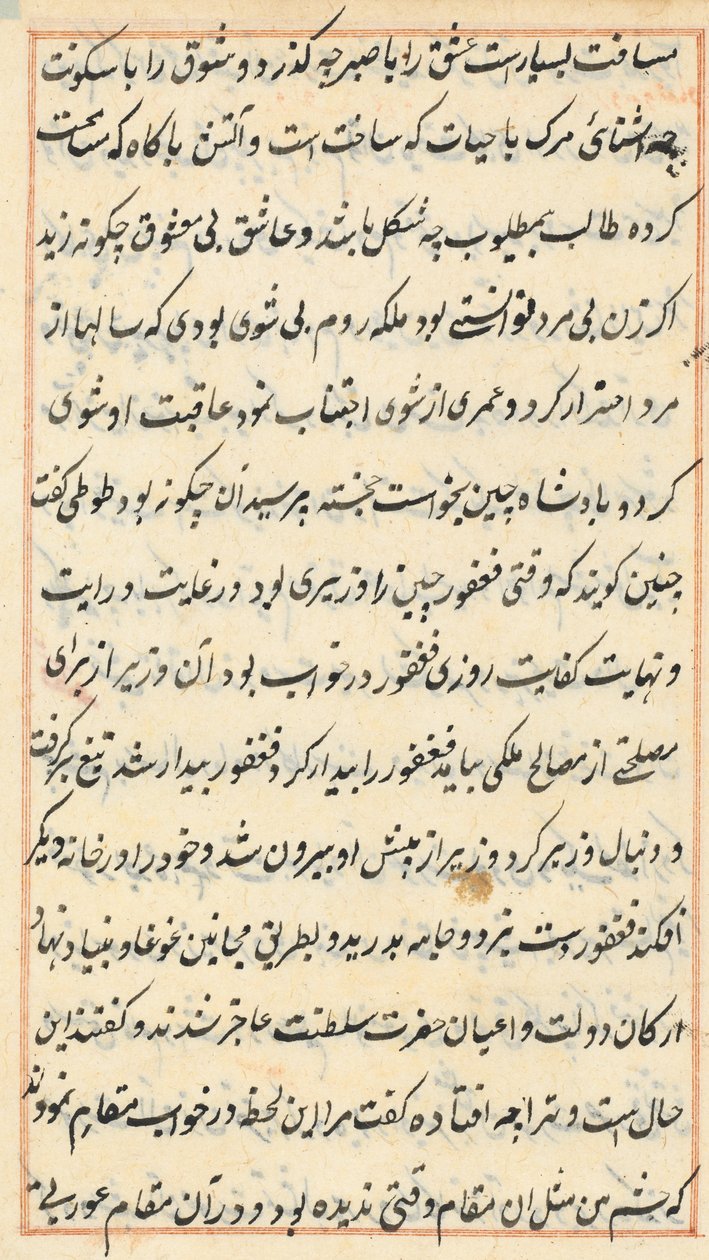 مسافت بسیار است عشق را با صبر چه کذر دو شوق را با سکونت
چه اشنائ مرک با حیات که ساخت است و آتش با کاه که ساخت
کرده طالب بمطلوب چه شکل باشد و عاشق بی معشوق چکونه زید
اکر زن بی مرد توانستے بود ملکه روم بی شوی بودی که سالها از
مرد احتراز کرد و عمری از شوی اجتناب نمود عاقبت او شوی
کرد و بادشاه چین بخواست خجسته پرسید آن چکونه بود طوطی کفت
چنین کویند که وقتی فغفور چین را وزیری بود در غایت درایت
و نهایت کفایت روزی فغفور در خواب بود آن وزیر از برای
مصلحتے از مصالح ملکی بیامد فغفور را بیدار کرد فغفور بیدار شد تیغ برکرفت
و دنبال وزیر کرد وزیر از پیش او بیرون شد و خود را در خانه دیکر
افکند فغفور دست بزد و جامه بدرید و بطریق مجانین غوغا و بنیاد نهاد
ارکان دولت و اعیان حضرت سلطنت عاجز شدند و کفتند این
حال است و ترا چه افتاده کفت مرا این لحظه در خواب مقام نمودند
که چشم من مثل ان مقام وقتی ندیده بود و در آن مقام عورتی